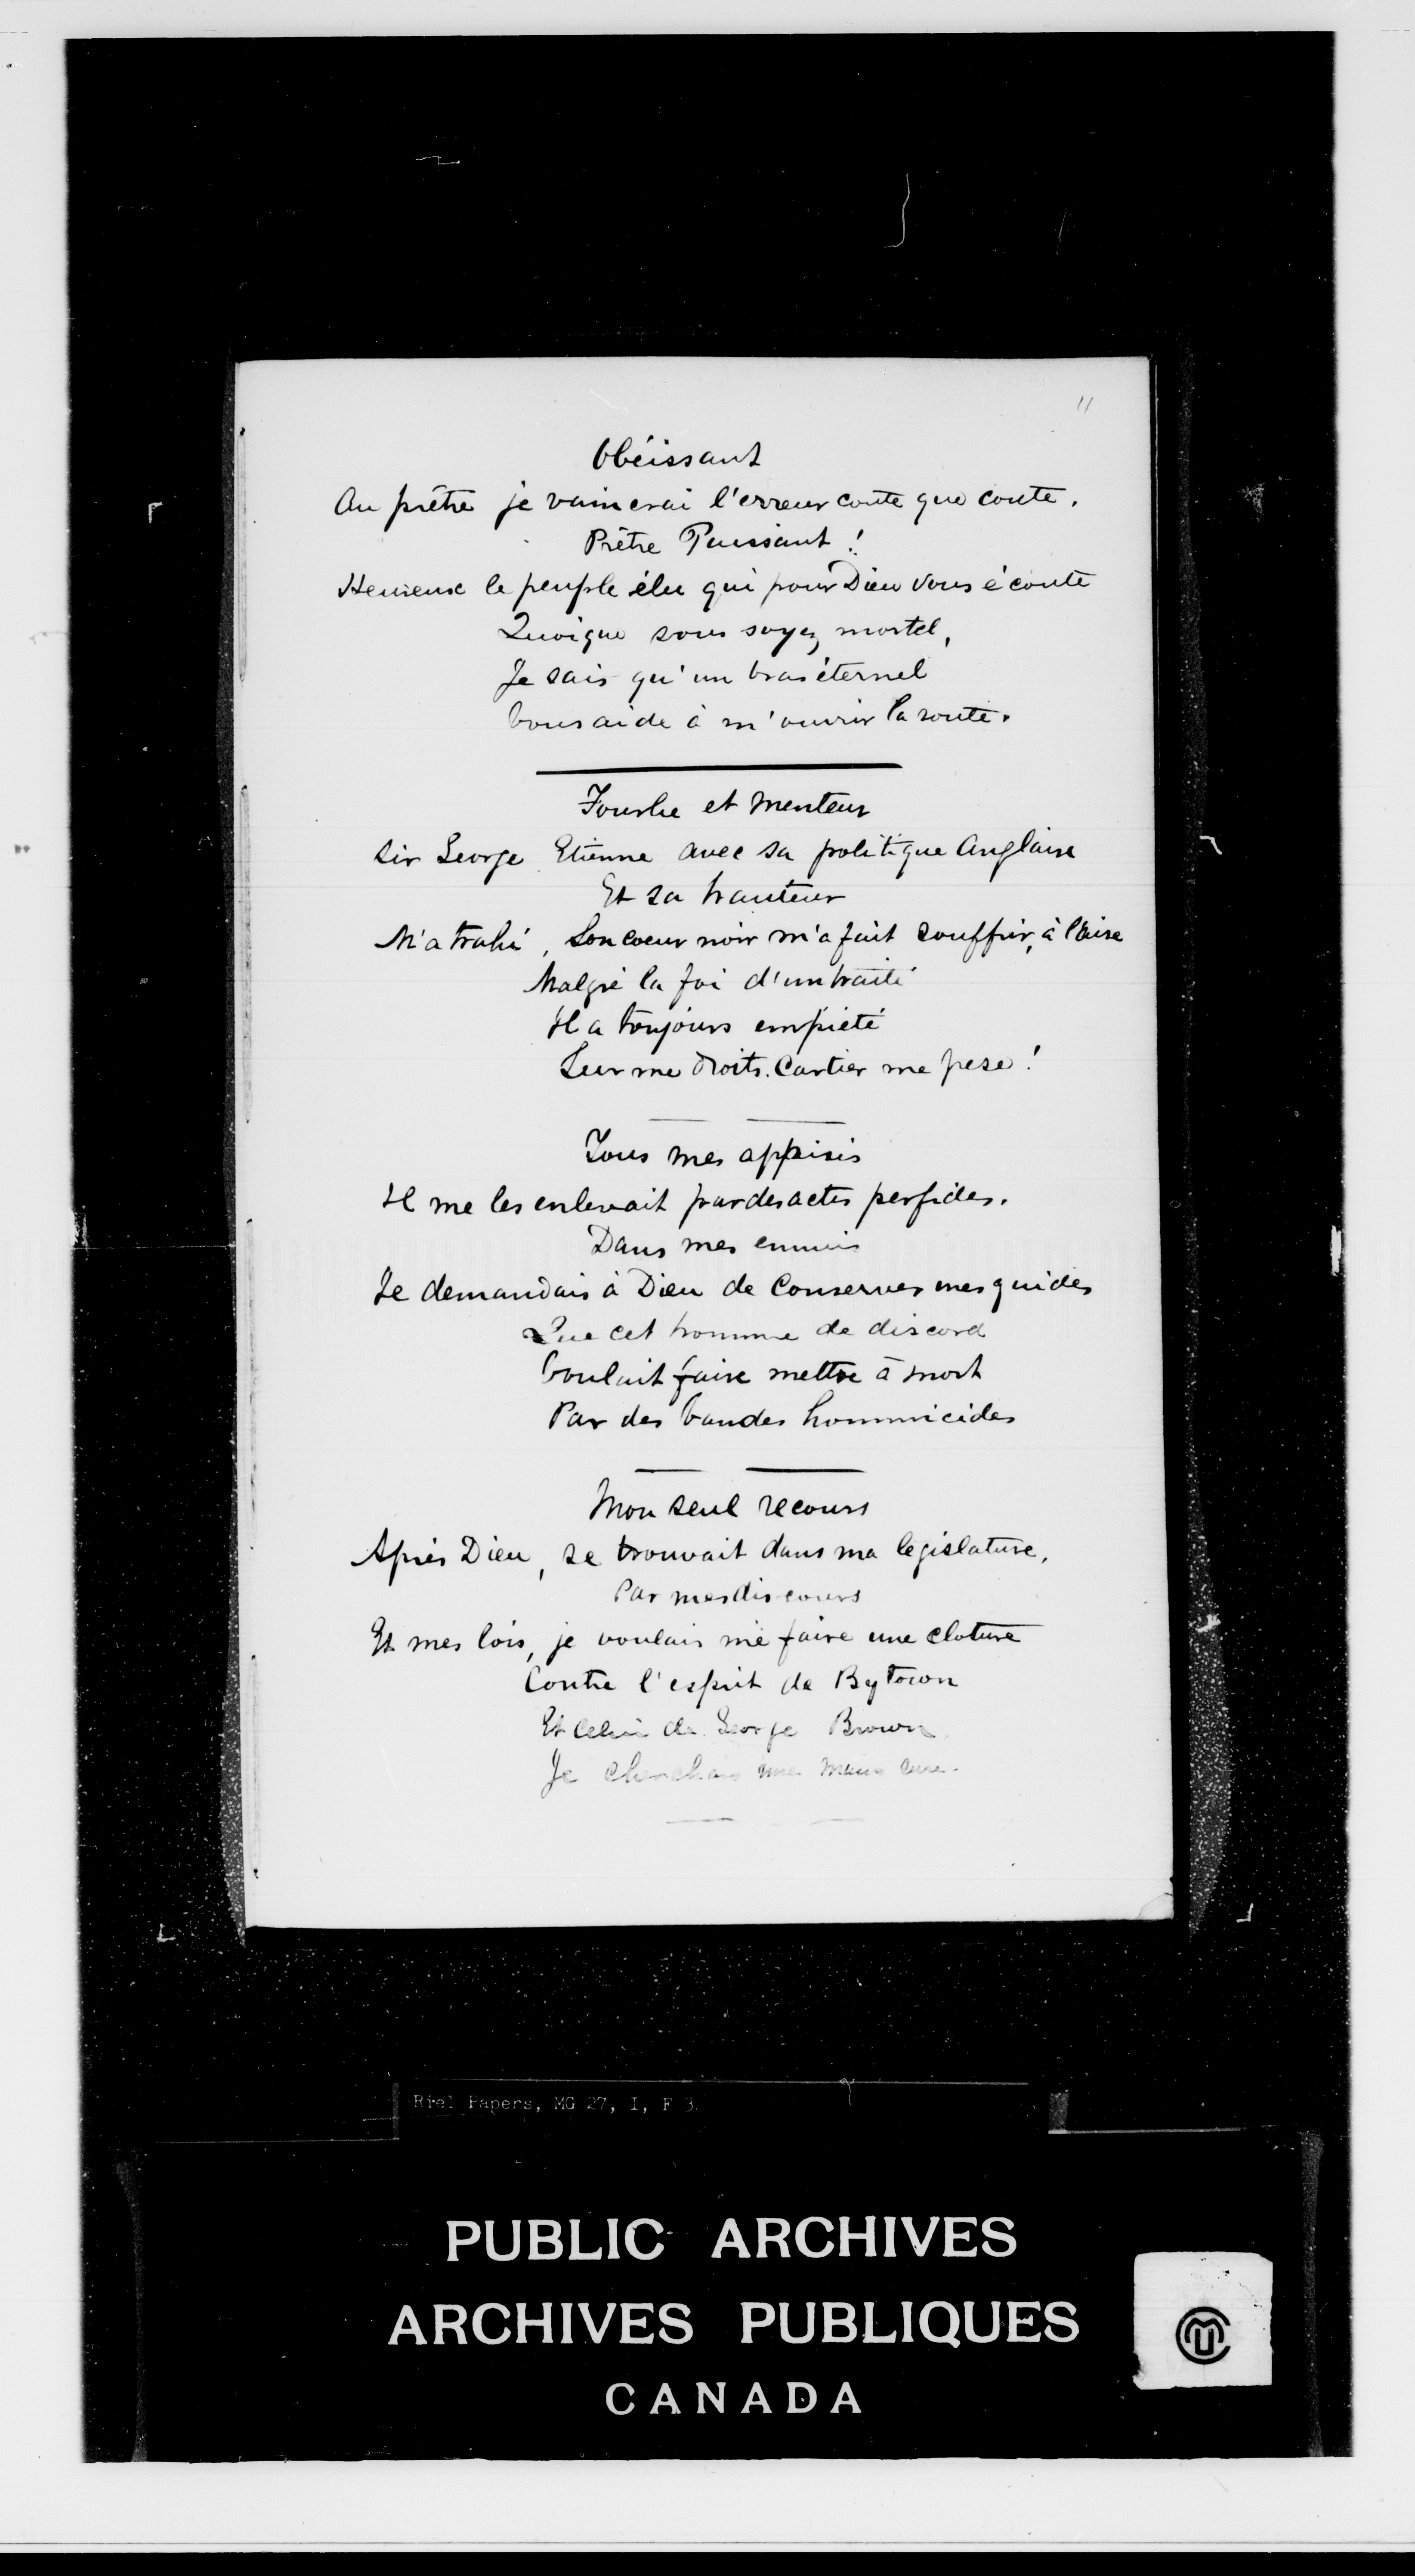 11
Obéissant
Au prêtre je vaincrai l'erreur coute que coute.
Prêtre Puissant !
Heureux le peuple élu qui pour Dieu vous écoute
Quoique vous soyez mortel,
Je sais qu'un bras éternel
Vous aide à m'ouvrir la route.
Fourbe et menteur
Sir George Etienne avec sa politique Anglaise
Et sa hauteur
M'a trahi, Son coeur noir m'a fait souffrir, à l'aise
Malgré la foi d'un traité
Il a toujours empiété
Sur me droits. Cartier me pese !
Tous mes appuis
Il me les enlevait par des actes perfides.
Dans mes ennuis
Je demandais à Dieu de Conserver mes guides
Que cet homme de discord
Voulait faire mettre à mort
Par des bandes hommicides
Mon seul recours
Après Dieu, se trouvait dans ma legislature,
Par mes discours
Et mes lois, je voulais me faire une cloture
Contre l'esprit de Bytown
Et celui de George Brown
Je cherchais une main sure.
Riel Papers, MG 27, I, F 3.
PUBLIC ARCHIVES
ARCHIVES PUBLIQUES
CANADA